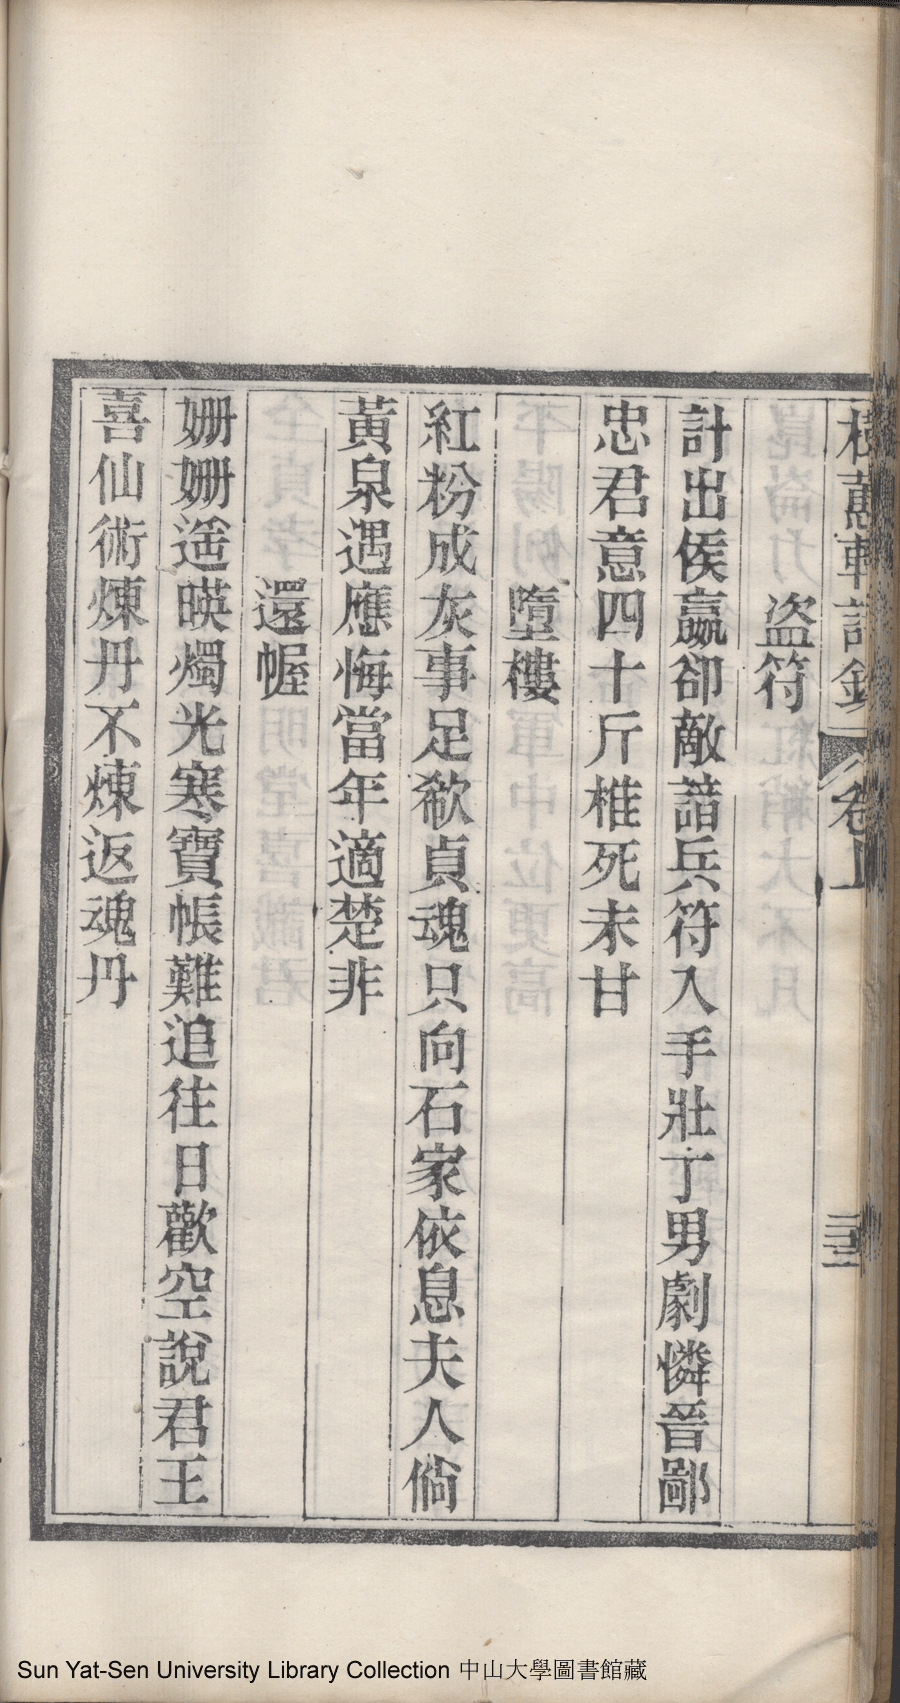 盜符
計出侯嬴卻敵諳兵符入手壯丁男劇憐晉鄙
忠君意四十斤椎死未甘
墮樓
紅粉成灰事足欷貞魂只向石家依息夫人倘
黃泉遇應悔當年適楚非
還幄
姍姍遙暎燭光寒寶帳難追往日歡空說君王
喜仙術煉丹不煉返魂丹
Sun Yat-Sen University Library Collection 中山大學圖書館藏